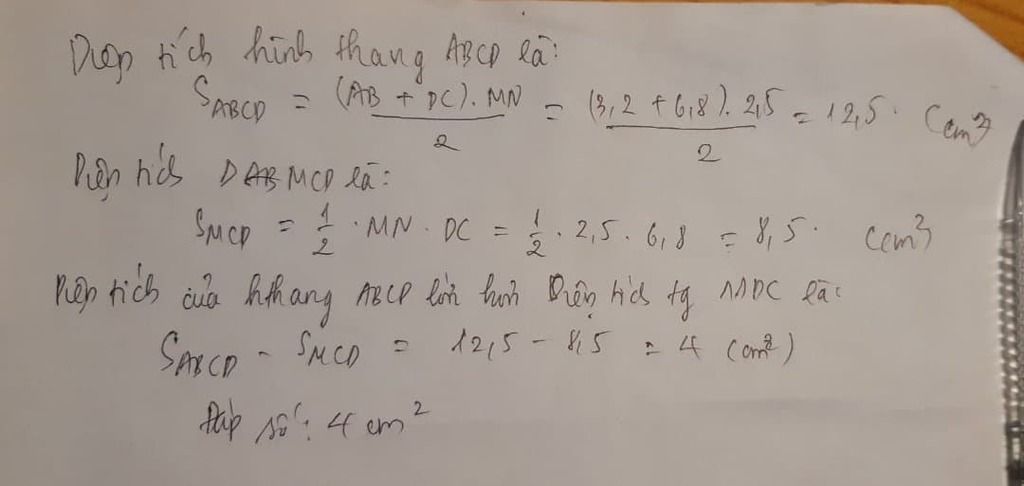 Diện tích hình thang ABCD là:
S_ABCD = (AB + DC). MN / 2 = (3,2 + 6,8). 2,5 / 2 = 12,5. (cm²)
Diện tích MCD là:
S_MCD = 1/2 . MN . DC = 1/2 . 2,5 . 6,8 = 8,5. (cm²)
Diện tích của hthang ABCD lớn hơn Diện tích tg MDC là:
S_ABCD - S_MCD = 12,5 - 8,5 = 4 (cm²)
Đáp số: 4 cm²